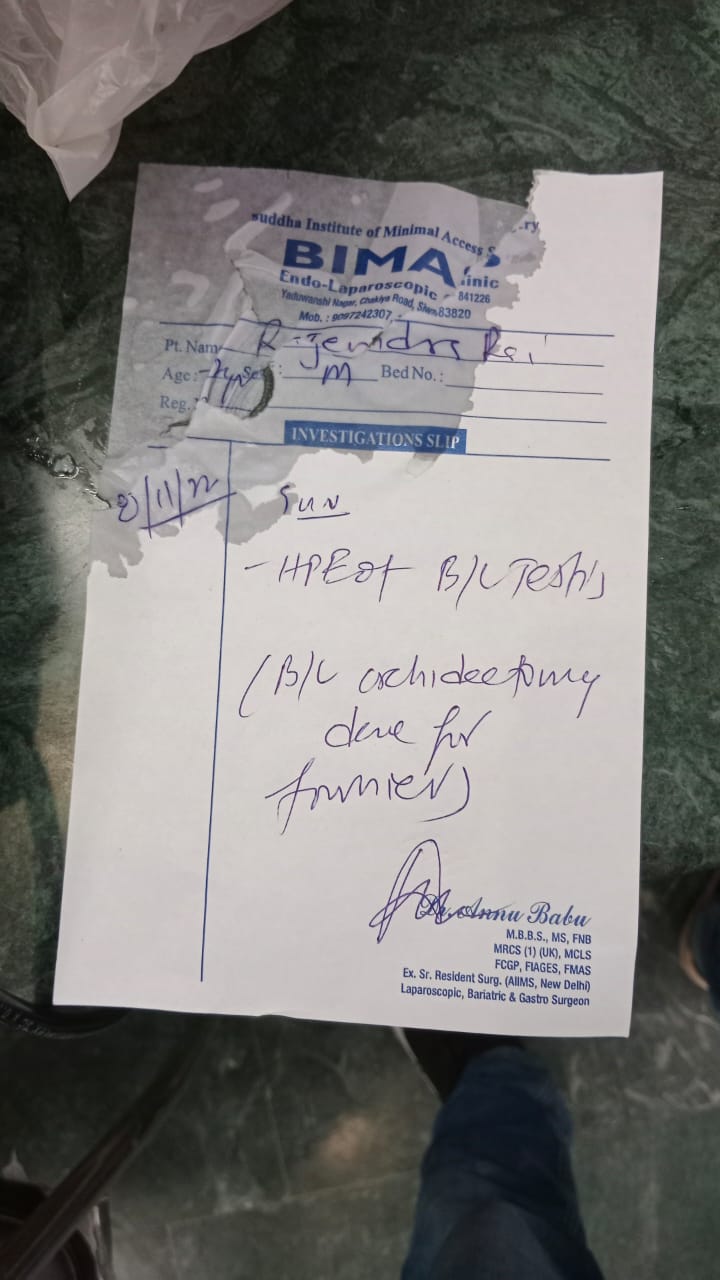 suddha Institute of Minimal Access S ry
BIMA S
Endo-Laparoscopic linic
Yaduwanshi Nagar, Chakiya Road, Siwan 841226
Mob. : 9097242307, 83820
Pt. Nam Rajendra Rai
Age : Se : M Bed No. :
Reg.
INVESTIGATIONS SLIP
/11/22
- HPE of B/L Testis
(B/L orchidectomy
done for
fournier)
Dr. Annu Babu
M.B.B.S., MS, FNB
MRCS (1) (UK), MCLS
FCGP, FIAGES, FMAS
Ex. Sr. Resident Surg. (AIIMS, New Delhi)
Laparoscopic, Bariatric & Gastro Surgeon